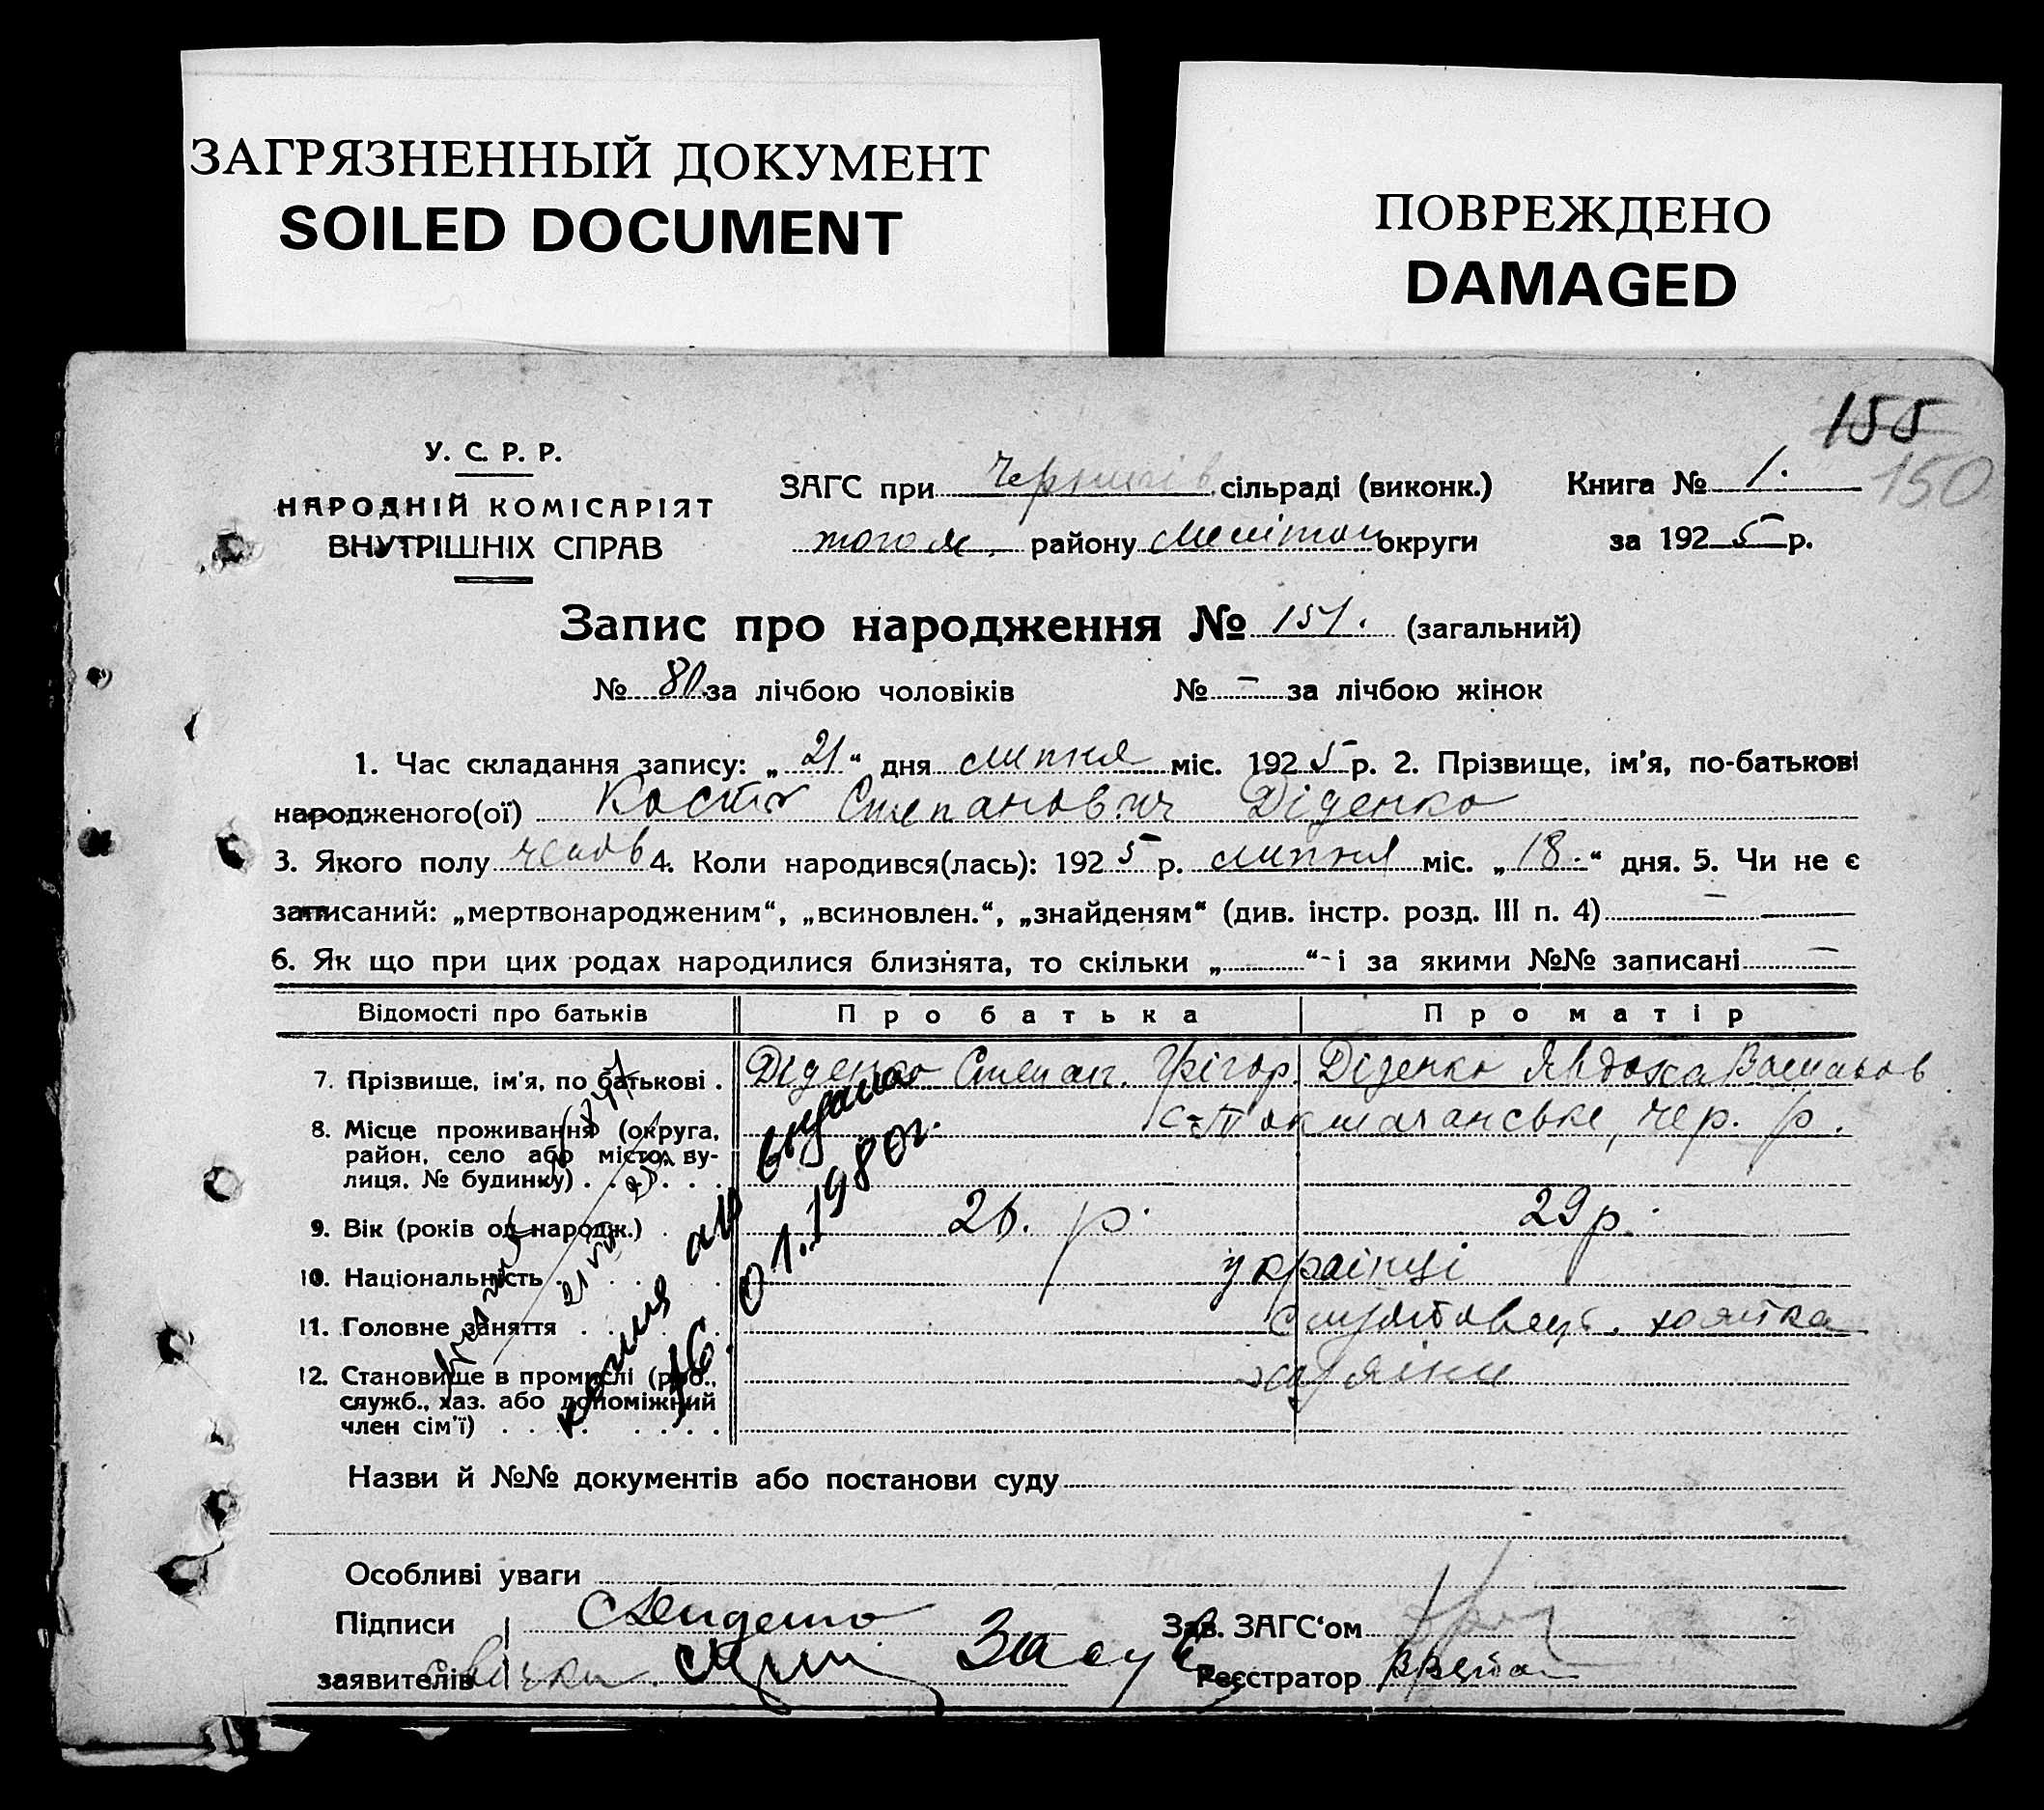 ЗАГРЯЗНЕННЫЙ ДОКУМЕНТ
SOILED DOCUMENT
ПОВРЕЖДЕНО
DAMAGED
155
150
У. С. Р. Р.
НАРОДНІЙ КОМІСАРІЯТ
ВНУТРІШНІХ СПРАВ
ЗАГС при Чернигів сільраді (виконк.)
того ж району Мелітоп округи
Книга № 1.
за 1925 р.
Запис про народження № 151. (загальний)
№ 80 за лічбою чоловіків № - за лічбою жінок
1. Час складання запису: „21“ дня липня міс. 1925 р. 2. Прізвище, ім'я, по-батькові
народженого(ої) Кость Степанович Діденко
3. Якого полу чолов 4. Коли народився(лась): 1925 р. липня міс. „18.“ дня. 5. Чи не є
записаний: „мертвонародженим“, „всиновлен.“, „знайденям“ (див. інстр. розд. III п. 4) -
6. Як що при цих родах народилися близнята, то скільки „ “ і за якими №№ записані -
Відомості про батьків Про батька Про матір
7. Прізвище, ім'я, по батькові . Діденко Степан. Грігор. Діденко Явдоха Васильов
8. Місце проживання (округа, район, село або місто, вулиця, № будинку) . . . . . чер. р.
9. Вік (років од народж.) . . 26. р. 29 р.
10. Національність . . . . українці
11. Головне заняття . . . .
12. Становище в промислі (роб., служб., хаз. або допоміжний член сім'ї) . . . . . . . хазяіни
выдана
16.01.1980г.
Назви й №№ документів або постанови суду
Особливі уваги
Підписи
заявителів
Зав. ЗАГС‘ом
Реєстратор